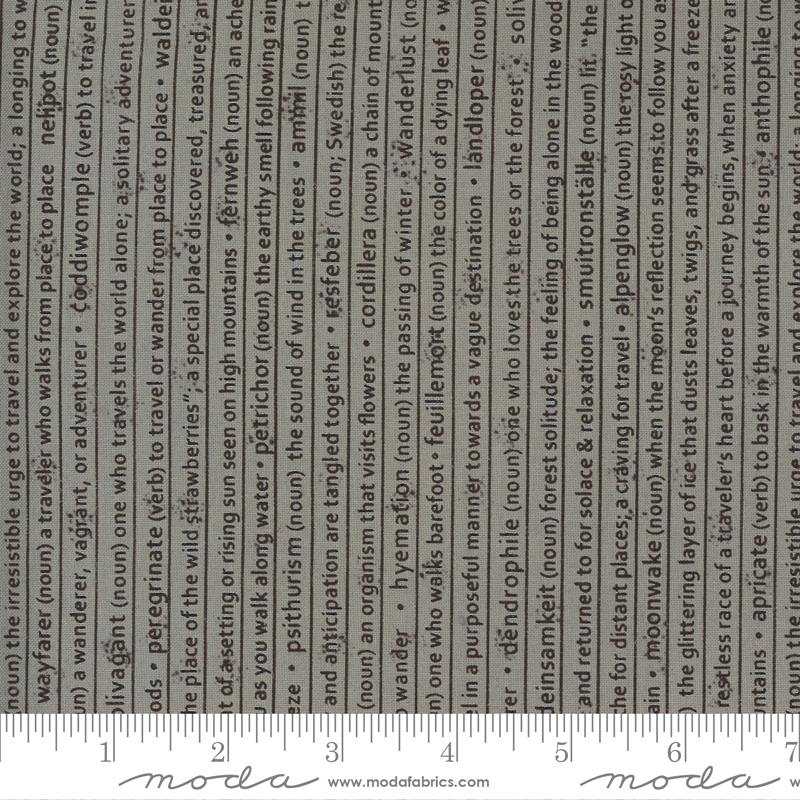 (noun) the irresistible urge to travel and explore the world; a longing to w
wayfarer (noun) a traveler who walks from place to place nelipot (noun)
un) a wanderer, vagrant, or adventurer • coddiwomple (verb) to travel in
olivagant (noun) one who travels the world alone; a solitary adventurer
ods • peregrinate (verb) to travel or wander from place to place • waldei
he place of the wild strawberries"; a special place discovered, treasured, an
t of a setting or rising sun seen on high mountains • fernweh (noun) an ache
as you walk along water • petrichor (noun) the earthy smell following rain
eze • psithurism (noun) the sound of wind in the trees • ammil (noun) t
and anticipation are tangled together • resfeber (noun; Swedish) the re
(noun) an organism that visits flowers • cordillera (noun) a chain of mount
wander • hyemation (noun) the passing of winter • Wanderlust (no
n) one who walks barefoot • feuillemort (noun) the color of a dying leaf • w
el in a purposeful manner towards a vague destination • landloper (noun)
rer • dendrophile (noun) one who loves the trees or the forest • soliv
deinsamkeit (noun) forest solitude; the feeling of being alone in the wood
and returned to for solace & relaxation • smultronställe (noun) lit. "the
the for distant places; a craving for travel • alpenglow (noun) the rosy light o
ain • moonwake (noun) when the moon's reflection seems to follow you as
) the glittering layer of ice that dusts leaves, twigs, and grass after a freeze
restless race of a traveler's heart before a journey begins, when anxiety an
untains • apricate (verb) to bask in the warmth of the sun • anthophile (no
(noun) the irresistible urge to travel and explore the world; a longing to w
1 2 3 4 5 6 7
moda www.modafabrics.com moda w